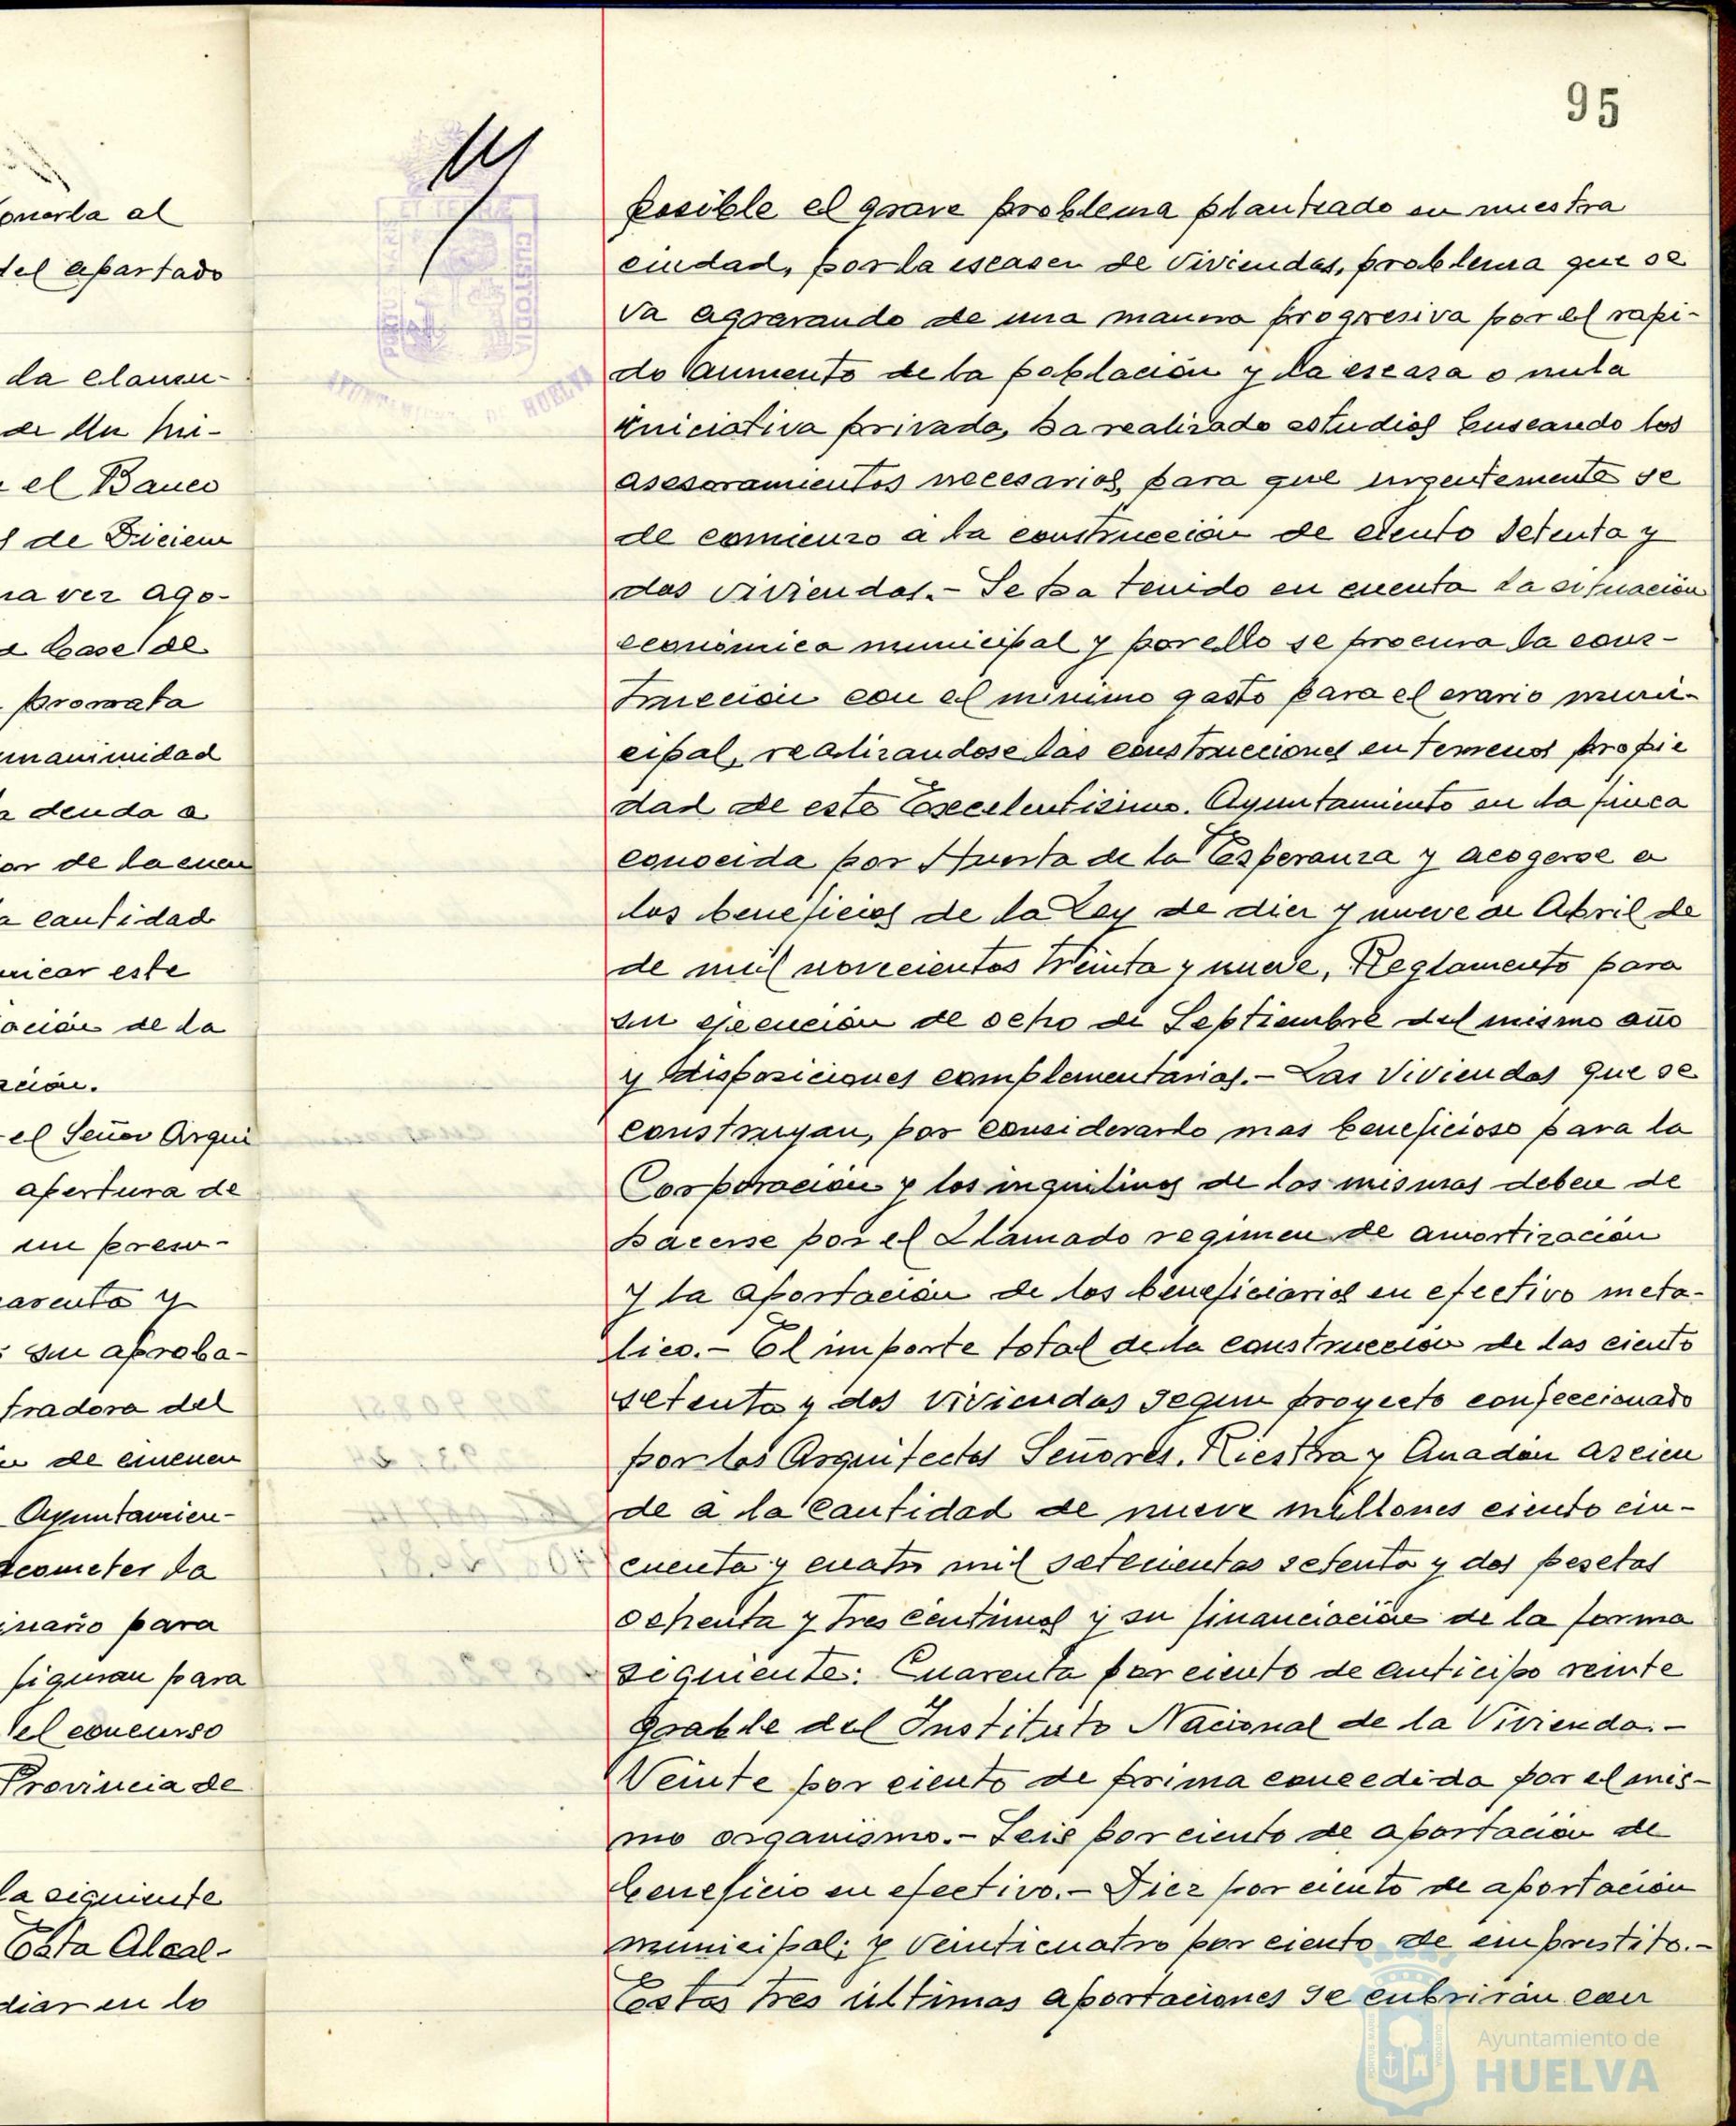 onerla al
del apartado
da clausu-
de un mi-
el Banco
de Diciem
na vez ago-
a base de
prorrata
unanimidad
a deuda a
or de la cuen
a cantidad
nicar este
ación de la
ción.
el Señor Arqui
apertura de
un presu-
asenta y
su aproba-
tradora del
de cincuen
Ayuntamien-
acometer la
inario para
figuran para
del concurso
Provincia de
la siguiente
Esta Alcal-
diar en lo
95
posible el grave problema planteado en nuestra
ciudad, por la escasez de viviendas, problema que se
va agravando de una manera progresiva por el rapi-
do aumento de la población y la escasa o nula
iniciativa privada, ha realizado estudios buscando los
asesoramientos necesarios para que urgentemente se
de comienzo a la construcción de ciento setenta y
dos viviendas.- Se ha tenido en cuenta la situación
económica municipal y por ello se procura la cons-
trucción con el minimo gasto para el erario muni-
cipal, realizandose las construcciones en terrenos propie
dad de este Excelentisimo. Ayuntamiento en la finca
conocida por Huerta de la Esperanza y acogerse a
los beneficios de la Ley de diez y nueve de Abril de
de mil novecientos treinta y nueve, Reglamento para
su ejecución de ocho de Septiembre del mismo año
y disposiciones complementarias.- Las Viviendas que se
construyan, por considerarlo mas beneficioso para la
Corporación y los inquilinos de las mismas deben de
hacerse por el Llamado regimen de amortización
y la aportación de los beneficiarios en efectivo meta-
lico.- El importe total de la construcción de las ciento
setenta y dos viviendas segun proyecto confeccionado
por los Arquitectos Señores. Riestra y Anadón ascien
de a la cantidad de nueve millones ciento cin-
cuenta y cuatro mil setecientas setenta y dos pesetas
ochenta y tres centimos y su financiación de la forma
siguiente: Cuarenta por ciento de anticipo reinte
grable del Instituto Nacional de la Vivienda.-
Veinte por ciento de prima concedida por el mis-
mo organismo.- Seis por ciento de aportación de
beneficio en efectivo.- Diez por ciento de aportación
municipal; y veinticuatro por ciento de emprestito.-
Estas tres últimas aportaciones se cubrirán con
Ayuntamiento de
HUELVA